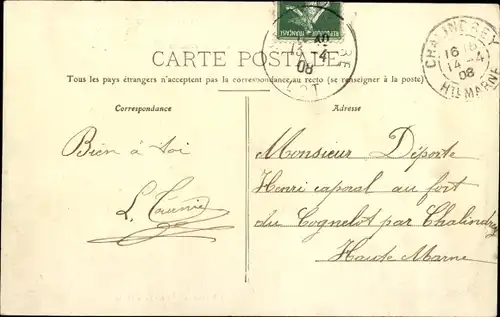 CARTE POSTALE
Tous les pays étrangers n'acceptent pas la correspondance au recto (se renseigner à la poste)
Correspondance
Adresse
Bien à toi
Monsieur Déporte
Henri caporal au fort
du Cognelot par Chalindrey
Haute Marne
CHALINDREY
16
14-4
08
HTE MARNE
13-4
08
LOT